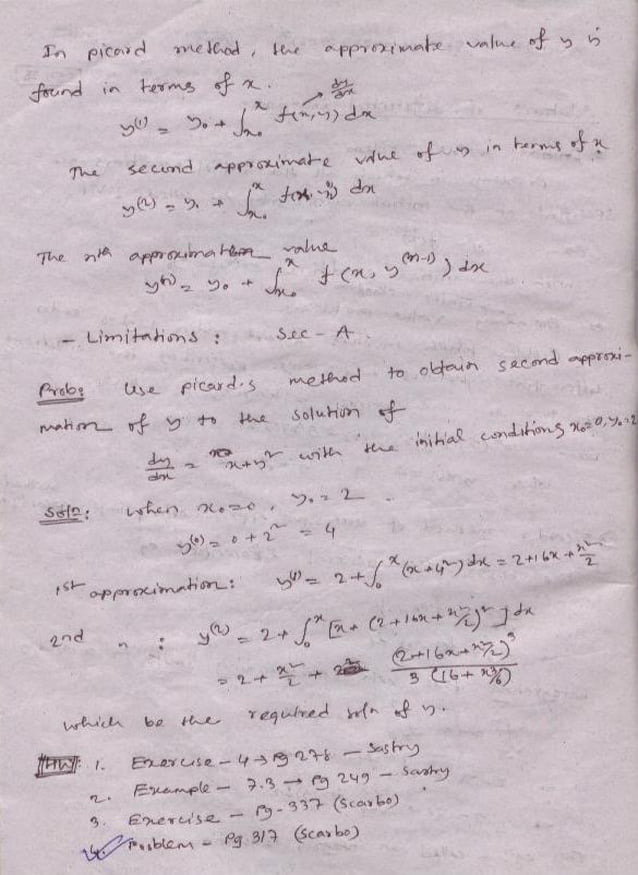 In picard method, the approximate value of y is
found in terms of x.
dy/dx
y⁽¹⁾ = y₀ + ∫ₓ₀ˣ f(x,y) dx
The second approximate value of y in terms of x
y⁽²⁾ = y₀ + ∫ₓ₀ˣ dx
The nth approximation value
y⁽ⁿ⁾ = y₀ + ∫ₓ₀ˣ f(x, y⁽ⁿ⁻¹⁾) dx
- Limitations : Sec - A.
Prob: Use picard's method to obtain second approxi-
mation of y to the solution of
dy/dx = x+y² with the initial conditions x₀=0, y₀=2
Soln: when x₀=0, y₀=2
y⁽⁰⁾ = 0+2² = 4
1st approximation: y⁽¹⁾ = 2+∫₀ˣ (x+4²) dx = 2+16x+x²/2
2nd " : y⁽²⁾ = 2+∫₀ˣ [x+(2+16x+x²/2)²] dx
= 2+x²/2 + (2+16x+x²/2)³ / 3(16+x³/6)
which be the required soln of y.
HW: 1. Exercise - 4 → pg 278 - Sastry
2. Example - 7.3 → pg 249 - Sastry
3. Exercise - pg-337 (Scarbo)
4. Problem - pg 317 (Scarbo)